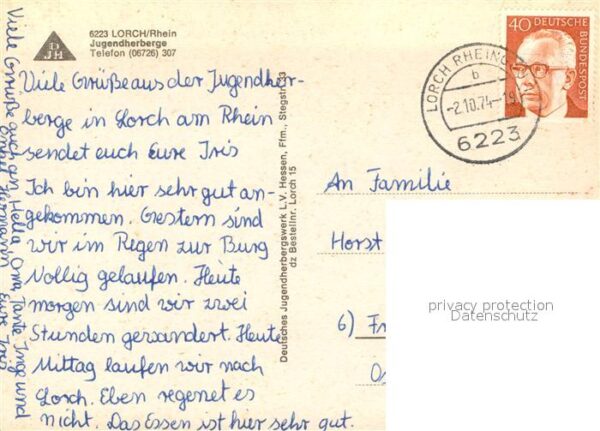 6223 LORCH/Rhein
Jugendherberge
Telefon (06726) 307
DJH
Viele Grüße aus der Jugendher-
berge in Lorch am Rhein
sendet euch Eure Iris
Ich bin hier sehr gut an-
gekommen. Gestern sind
wir im Regen zur Burg
Vollig gelaufen. Heute
morgen sind wir zwei
Stunden gewandert. Heute
Mittag laufen wir nach
Lorch. Eben regenet es
nicht. Das Essen ist hier sehr gut.
Viele Grüße auch an Hella, Oma, Tante Inge und
Onkel Hermann Eure Iris
Deutsches Jugendherbergswerk L.V. Hessen, Ffm., Stegstr. 33
dz Bestellnr. Lorch 15
40 DEUTSCHE
BUNDESPOST
LORCH RHEING
b
-2.10.74-19
6223
An Familie
Horst
6) Fr
privacy protection
Datenschutz